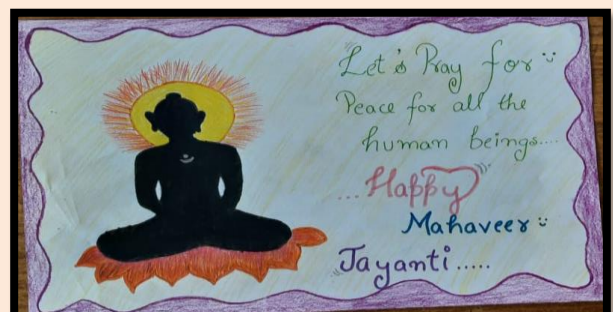 Let's Pray for
Peace for all the
human beings....
...Happy
Mahaveer
Jayanti.....